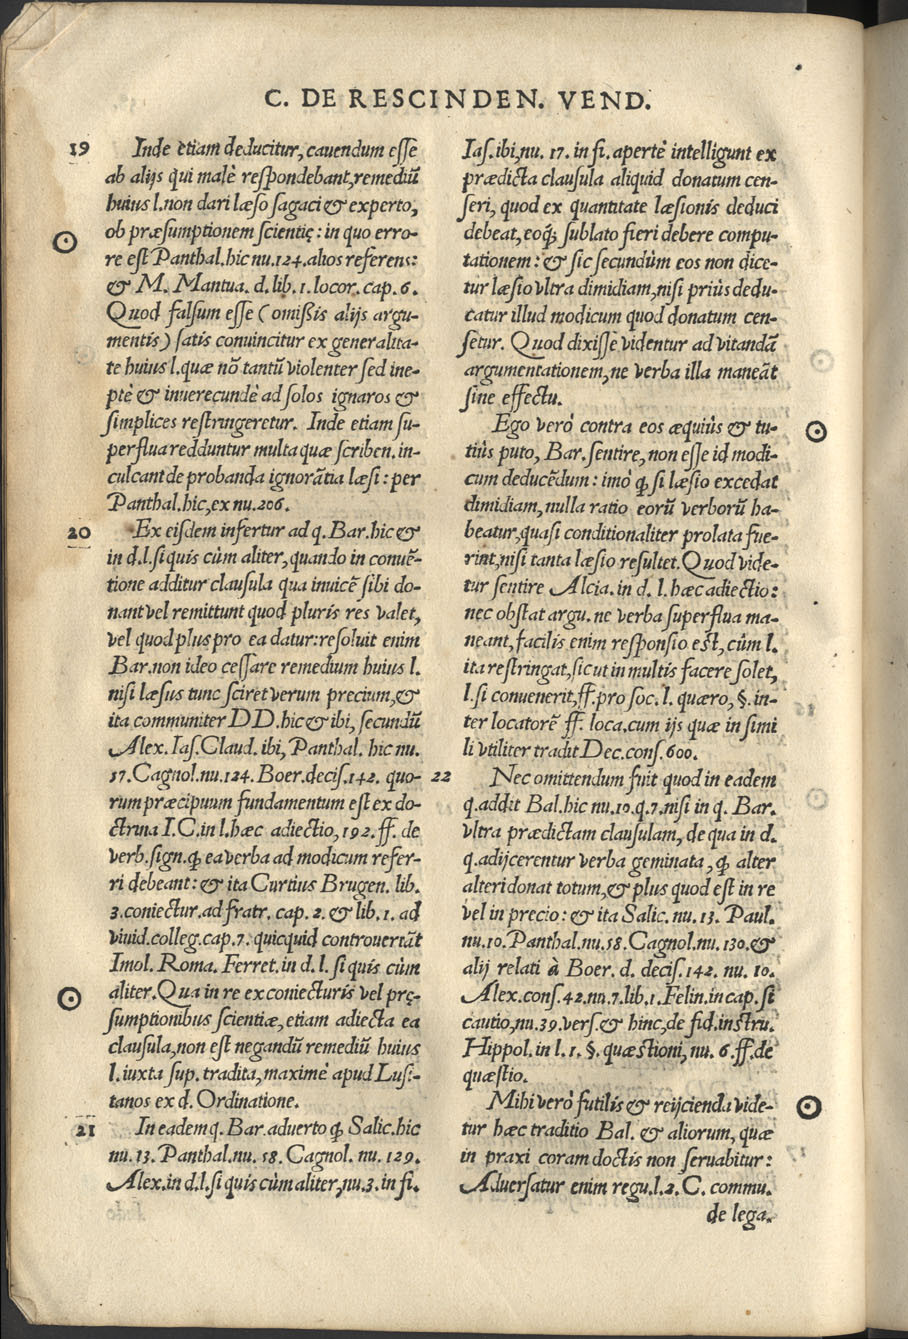 C. DE RESCINDEN. VEND.
19 Inde etiam deducitur, cauendum eſſe
ab alijs qui malè reſpondebant, remediũ
huius l. non dari læſo ſagaci & experto,
ob præſumptionem ſcientię: in quo erro-
re eſt Panthal. hic nu. 124. alios referens:
& M. Mantua. d. lib. 1. locor. cap. 6.
Quod falſum eſſe (omiſsis alijs argu-
mentis) ſatis conuincitur ex generalita-
te huius l. quæ nõ tantũ violenter ſed ine-
ptè & inuerecundè ad ſolos ignaros &
ſimplices reſtringeretur. Inde etiam ſu-
perflua redduntur multa quæ ſcriben. in-
culcant de probanda ignorãtia læſi: per
Panthal. hic, ex nu. 206.
20 Ex eiſdem infertur ad q. Bar. hic &
in d. l. ſi quis cùm aliter, quando in conuẽ-
tione additur clauſula qua inuicẽ ſibi do-
nant vel remittunt quod pluris res valet,
vel quod plus pro ea datur: reſoluit enim
Bar. non ideo ceſſare remedium huius l.
niſi læſus tunc ſciret verum precium, &
ita communiter DD. hic & ibi, ſecundũ
Alex. Iaſ. Claud. ibi, Panthal. hic nu.
57. Cagnol. nu. 124. Boer. deciſ. 142. quo-
rum præcipuum fundamentum eſt ex do-
ctrina I. C. in l. hæc adiectio, 192. ff. de
verb. ſign. ꝙ ea verba ad modicum refer-
ri debeant: & ita Curtius Brugen. lib.
3. coniectur. ad fratr. cap. 2. & lib. 1. ad
viuid. colleg. cap. 7. quicquid controuertãt
Imol. Roma. Ferret. in d. l. ſi quis cùm
aliter. Qua in re ex coniecturis vel prę-
ſumptionibus ſcientiæ, etiam adiecta ea
clauſula, non eſt negandũ remediũ huius
l. iuxta ſup. tradita, maximè apud Luſi-
tanos ex d. Ordinatione.
21 In eadem q. Bar. aduerto ꝙ Salic. hic
nu. 13. Panthal. nu. 58. Cagnol. nu. 129.
Alex. in d. l. ſi quis cùm aliter, nu. 3. in fi.
Iaſ. ibi, nu. 17. in fi. apertè intelligunt ex
prædicta clauſula aliquid donatum cen-
ſeri, quod ex quantitate læſionis deduci
debeat, eoq́; ſublato fieri debere compu-
tationem: & ſic ſecundùm eos non dice-
tur læſio vltra dimidiam, niſi priùs dedu-
catur illud modicum quod donatum cen-
ſetur. Quod dixiſſe videntur ad vitandã
argumentationem, ne verba illa maneãt
ſine effectu.
Ego verò contra eos æquiùs & tu-
tiùs puto, Bar. ſentire, non eſſe id modi-
cum deducẽdum: imò ꝙ ſi læſio excedat
dimidiam, nulla ratio eorũ verborũ ha-
beatur, quaſi conditionaliter prolata fue-
rint, niſi tanta læſio reſultet. Quod vide-
tur ſentire Alcia. in d. l. hæc adiectio:
nec obſtat argu. ne verba ſuperflua ma-
neant, facilis enim reſponſio eſt, cùm l.
ita reſtringat, ſicut in multis facere ſolet,
l. ſi conuenerit, ff. pro ſoc. l. quæro, §. in-
ter locatorẽ ff. loca. cum ijs quæ in ſimi
li vtiliter tradit Dec. conſ. 600.
22 Nec omittendum fuit quod in eadem
q. addit Bal. hic nu. 10. q. 7. niſi in q. Bar.
vltra prædictam clauſulam, de qua in d.
q. adijcerentur verba geminata, ꝙ alter
alteri donat totum, & plus quod eſt in re
vel in precio: & ita Salic. nu. 13. Paul.
nu. 10. Panthal. nu. 58. Cagnol. nu. 130. &
alij relati à Boer. d. deciſ. 142. nu. 10.
Alex. conſ. 42. nu. 7. lib. 1. Felin. in cap. ſi
cautio, nu. 39. verſ. & hinc, de fid. inſtru.
Hippol. in l. 1. §. quæſtioni, nu. 6. ff. de
quæſtio.
Mihi verò futilis & reijcienda vide-
tur hæc traditio Bal. & aliorum, quæ
in praxi coram doctis non ſeruabitur:
Aduerſatur enim regu. l. 2. C. commu.
de lega.